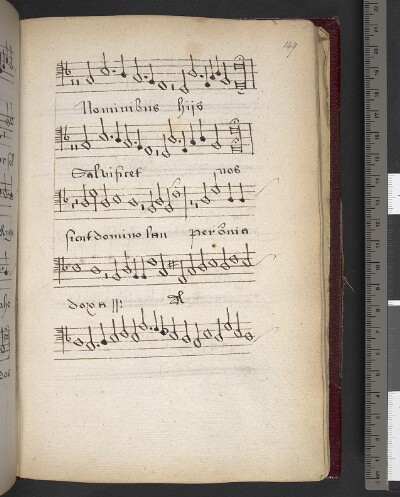 149
Nominibus hijs
Salvificet nos
sicut domino lau perōnia
doxa